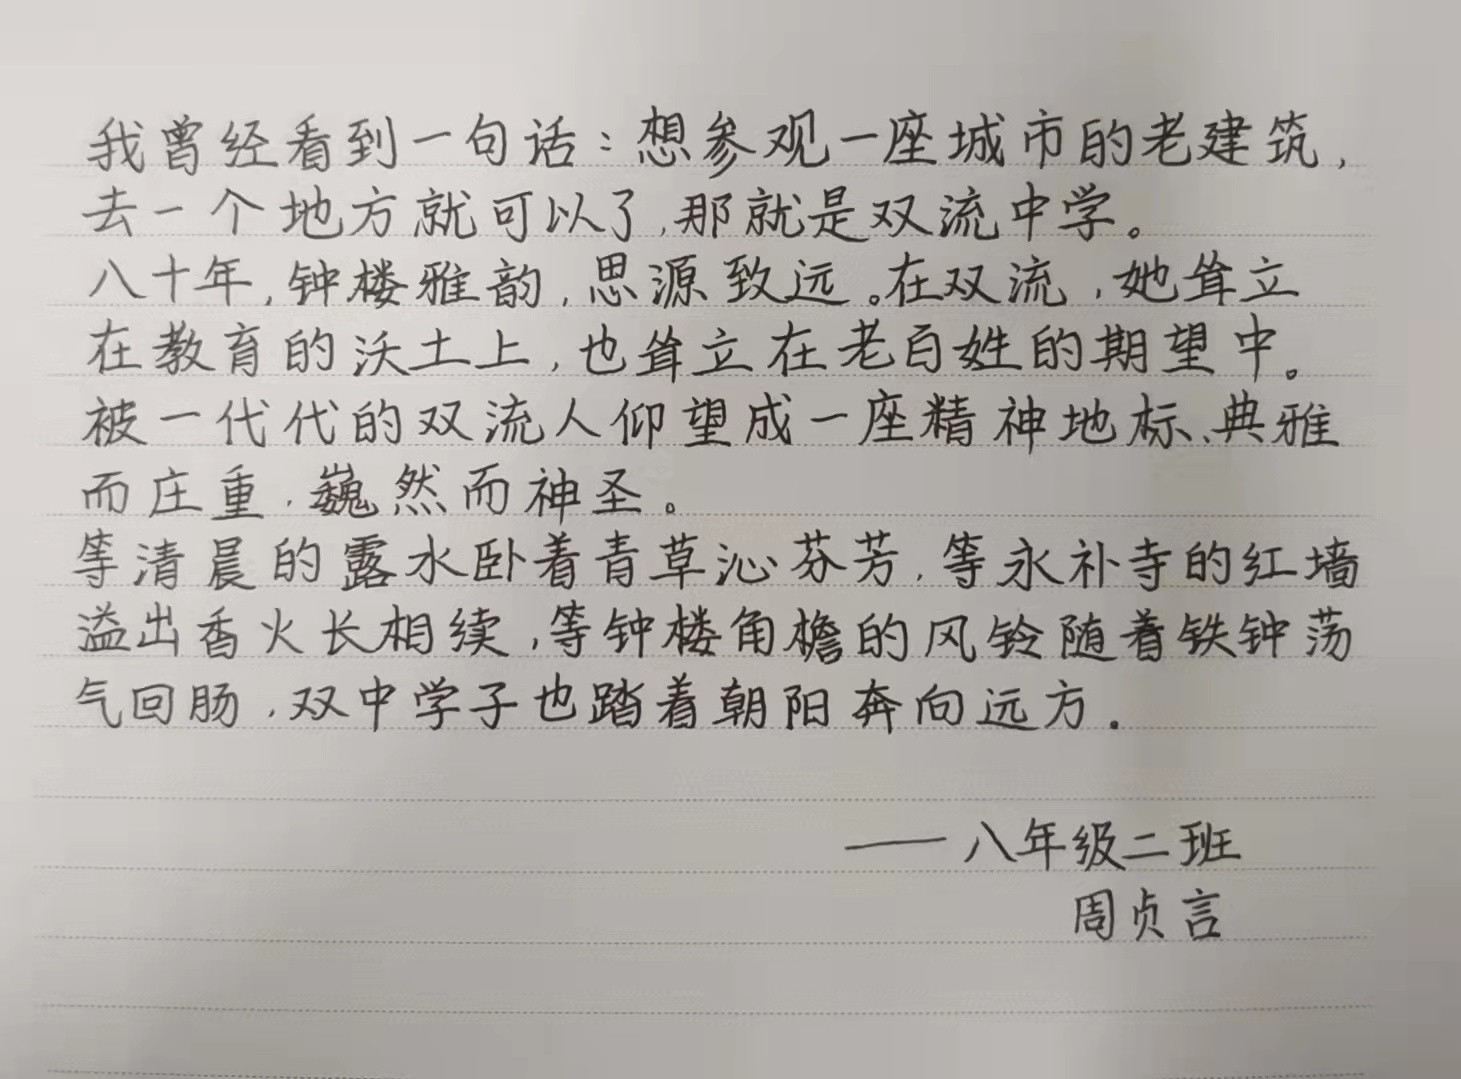 我曾经看到一句话：想参观一座城市的老建筑，
去一个地方就可以了，那就是双流中学。
八十年，钟楼雅韵，思源致远。在双流，她耸立
在教育的沃土上，也耸立在老百姓的期望中。
被一代代的双流人仰望成一座精神地标、典雅
而庄重，巍然而神圣。
等清晨的露水卧着青草沁芬芳，等永补寺的红墙
溢出香火长相续，等钟楼角檐的风铃随着铁钟荡
气回肠，双中学子也踏着朝阳奔向远方．
——八年级二班
周贞言